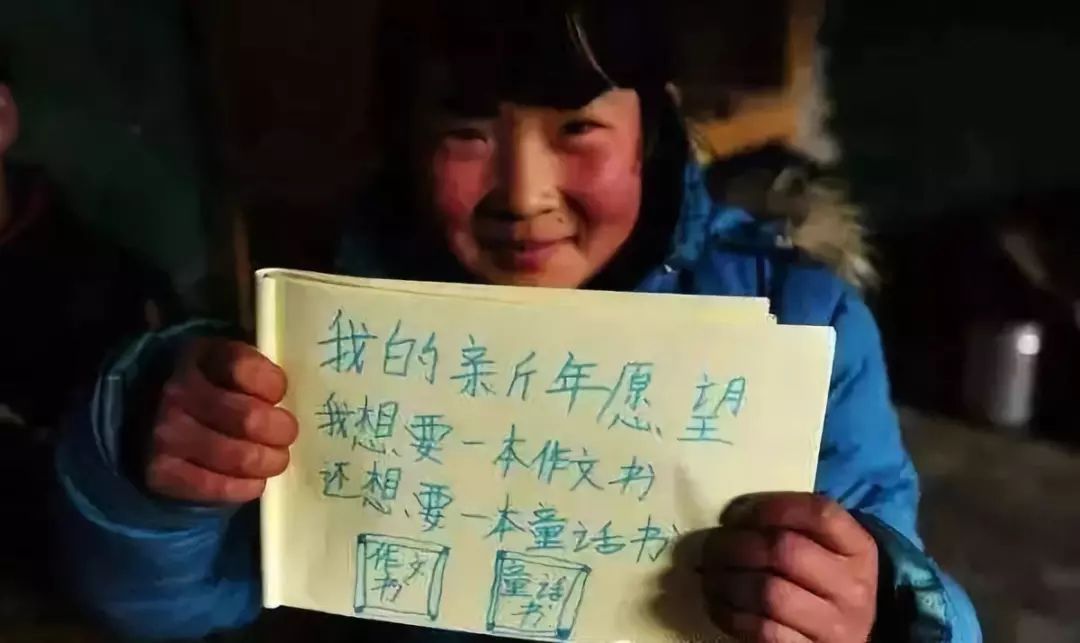 我的新年愿望
我想要一本作文书
还想要一本童话书
作文书
童话书